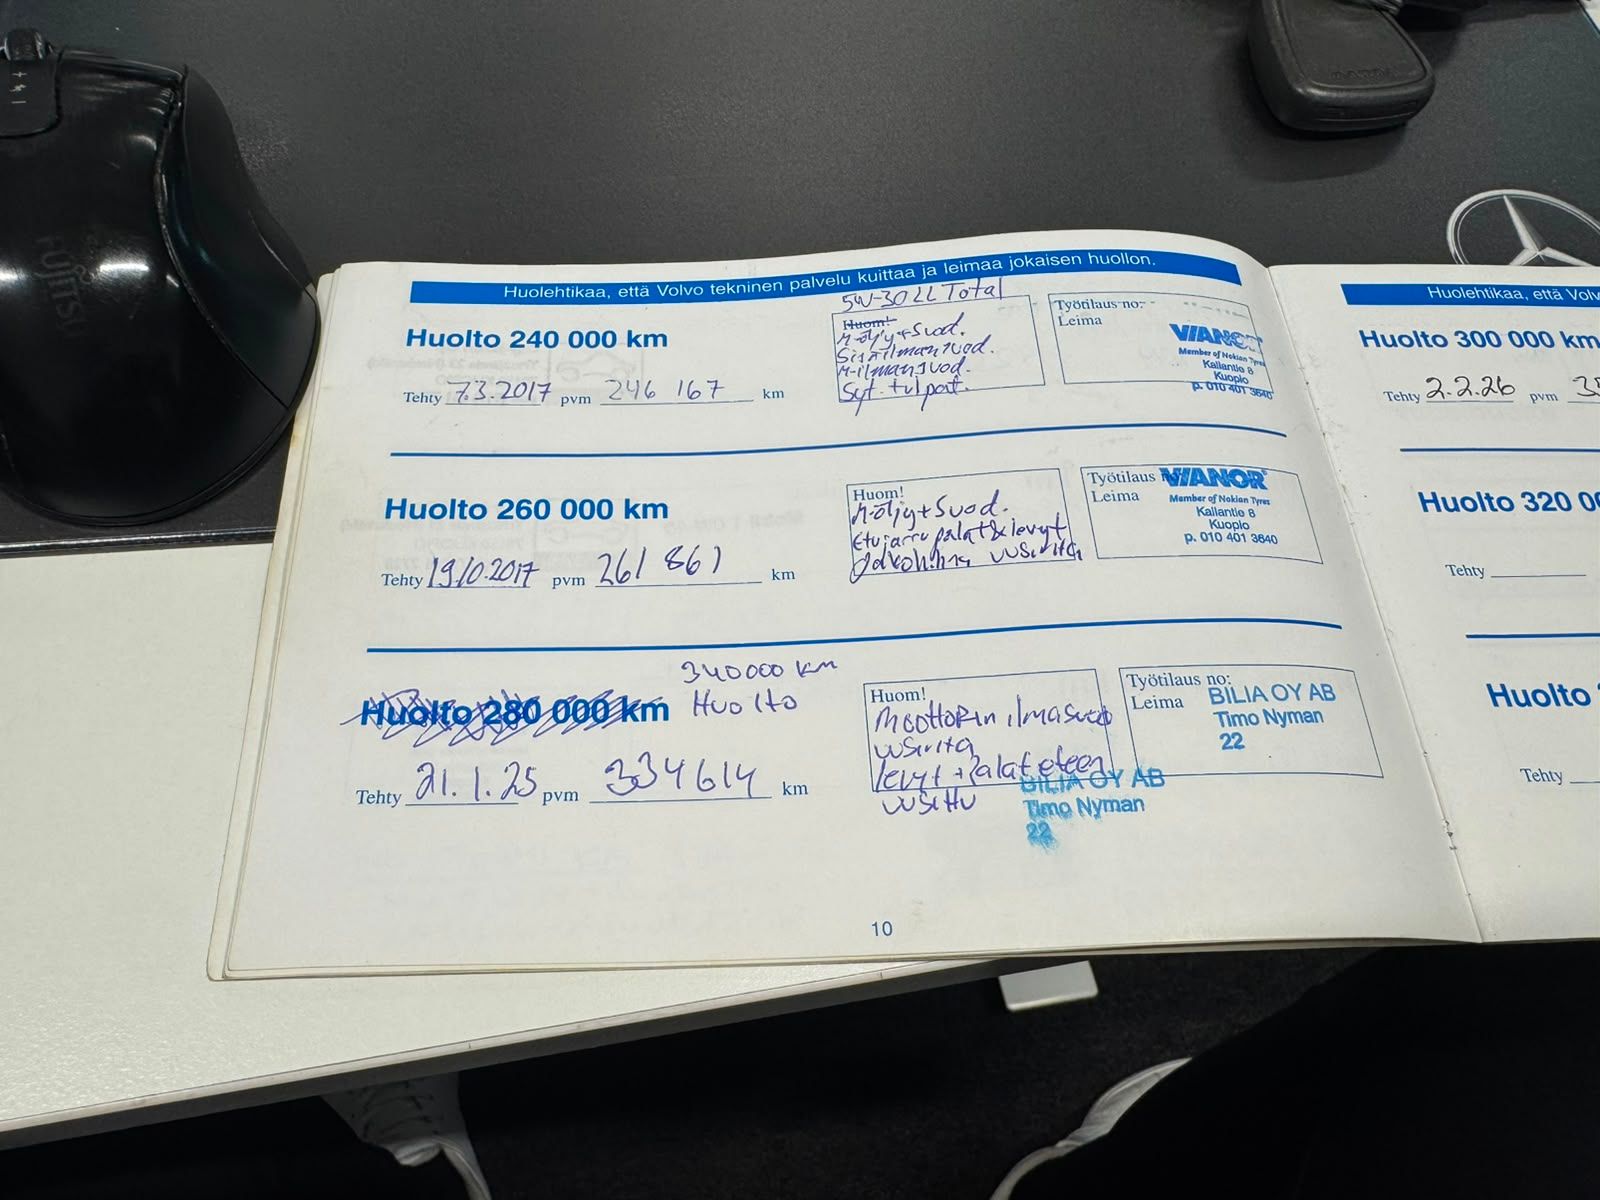 FUJITSU
Huolehtikaa, että Volvo tekninen palvelu kuittaa ja leimaa jokaisen huollon.
5W-30 LL Total
Huolto 240 000 km
Huom!
M-öljy+Suod.
Sisäilmansuod.
M-ilmansuod.
Syt. tulpat.
Työtilaus no:
Leima
VIANOR
Member of Nokian Tyres
Kallantie 8
Kuopio
p. 010 401 3640
Tehty 7.3.2017 pvm 246 167 km
Huolto 260 000 km
Huom!
M-öljy+Suod.
Etujarrupalat&levyt
Jakohihna uusittu
Työtilaus
Leima
VIANOR
Member of Nokian Tyres
Kallantie 8
Kuopio
p. 010 401 3640
Tehty 19.10.2017 pvm 261 861 km
340000 km
Huolto 280 000 km Huolto
Huom!
Moottorin ilmasuod
uusittu
levyt + Palat eteen
uusittu
Työtilaus no:
Leima
BILIA OY AB
Timo Nyman
22
BILIA OY AB
Timo Nyman
22
Tehty 21.1.25 pvm 334614 km
10
Huolehtikaa, että Volv
Huolto 300 000 km
Tehty 2.2.26 pvm
Huolto 320 00
Tehty
Huolto
Tehty